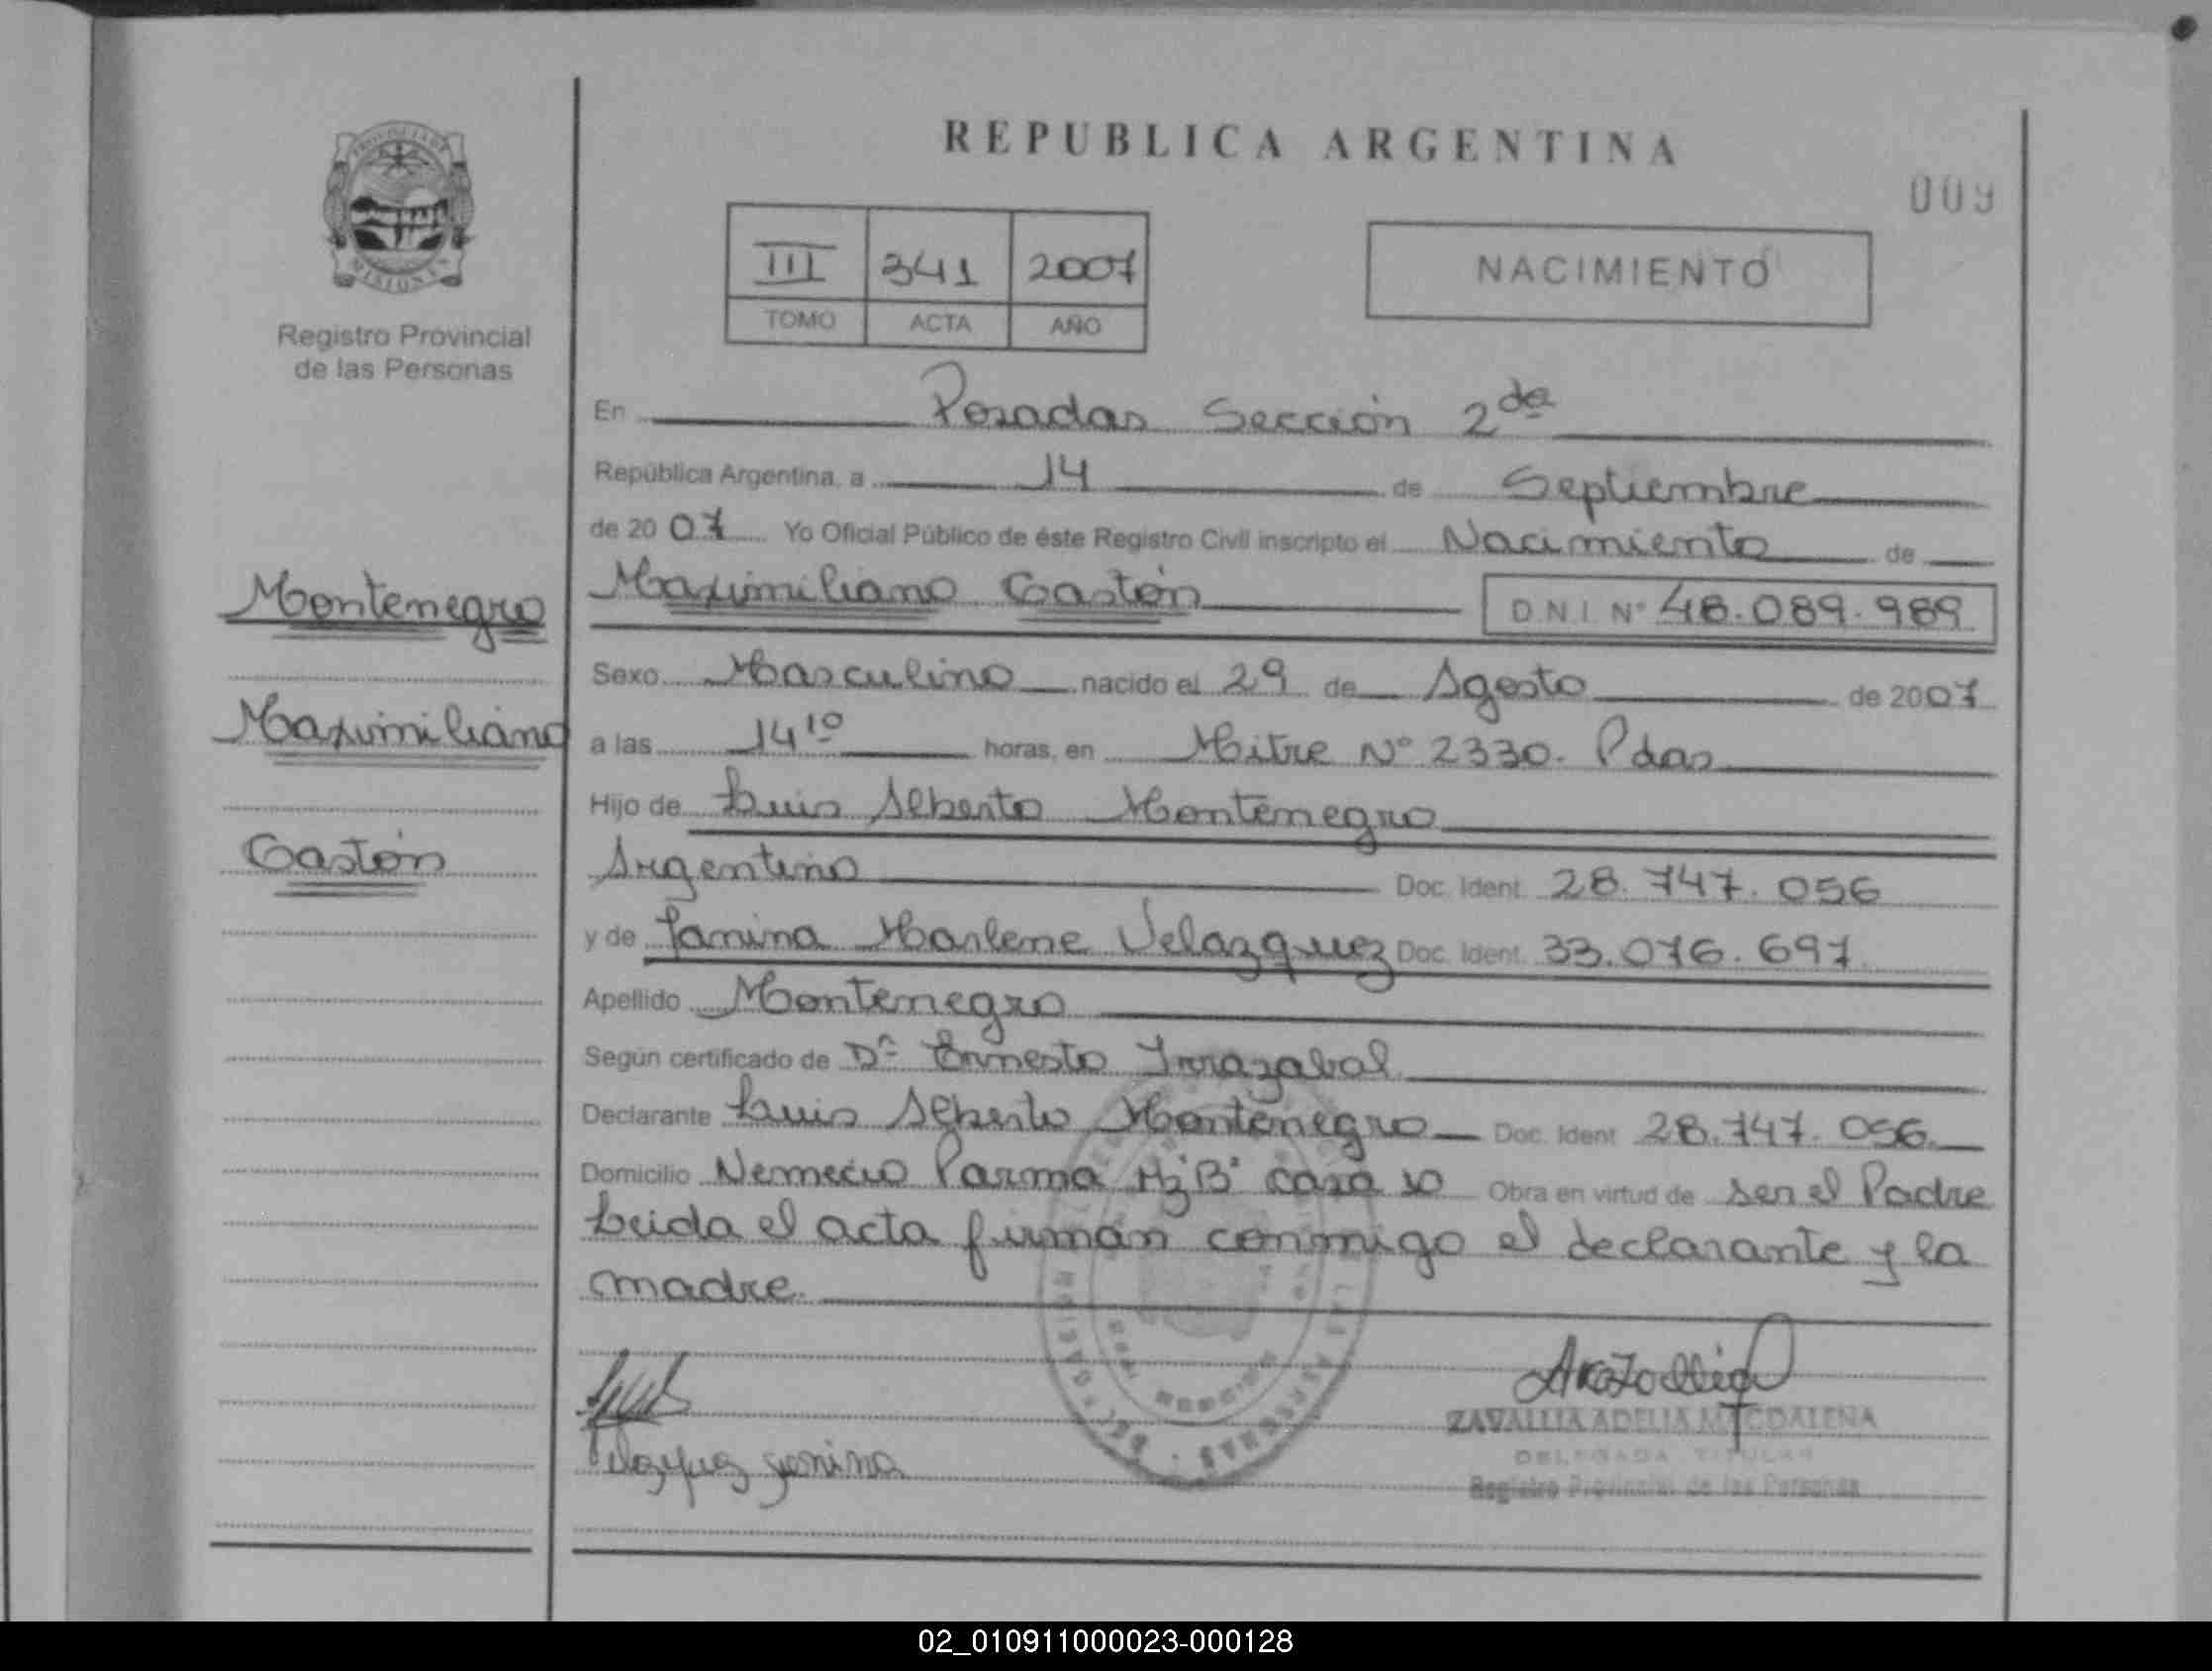 REPUBLICA ARGENTINA
009
III 341 2007
TOMO ACTA AÑO
NACIMIENTO
Registro Provincial
de las Personas
En Posadas Sección 2da
República Argentina, a 14 de Septiembre
de 2007 Yo Oficial Público de éste Registro Civil inscripto el Nacimiento de
Maximiliano Gastón D.N.I. Nº 48.089.989
Montenegro
Maximiliano
Gastón
Sexo Masculino nacido el 29 de Agosto de 2007
a las 14 10 horas, en Mitre Nº 2330. Pdas
Hijo de Luis Alberto Montenegro
Argentino Doc. Ident. 28.747.056
y de Janina Marlene Velazquez Doc. Ident. 33.076.697
Apellido Montenegro
Según certificado de Dr Ernesto Irrazabal
Declarante Luis Alberto Montenegro Doc. Ident 28.747.056.
Domicilio Nemecio Parma Mz B casa 10 Obra en virtud de ser el Padre
Leida el acta firman conmigo el declarante y la
madre.
Velazquez Janina
ZAVALLIA ADELIA MAGDALENA
DELEGADA TITULAR
Registro Provincial de las Personas
02_010911000023-000128